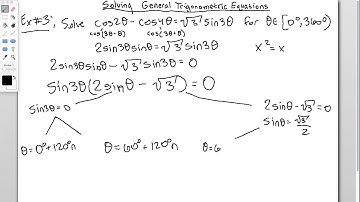 Solving General Trigonometric Equations
Ex #3: Solve cos2θ - cos4θ = √3 sin3θ for θ∈[0°,360°)
cos(3θ-θ) cos(3θ+θ)
2sin3θsinθ = √3 sin3θ
x² = x
2sin3θsinθ - √3 sin3θ = 0
sin3θ(2sinθ - √3) = 0
sin3θ = 0
2sinθ - √3 = 0
sinθ = √3/2
θ = 0° + 120°n
θ = 60° + 120°n
θ = 6